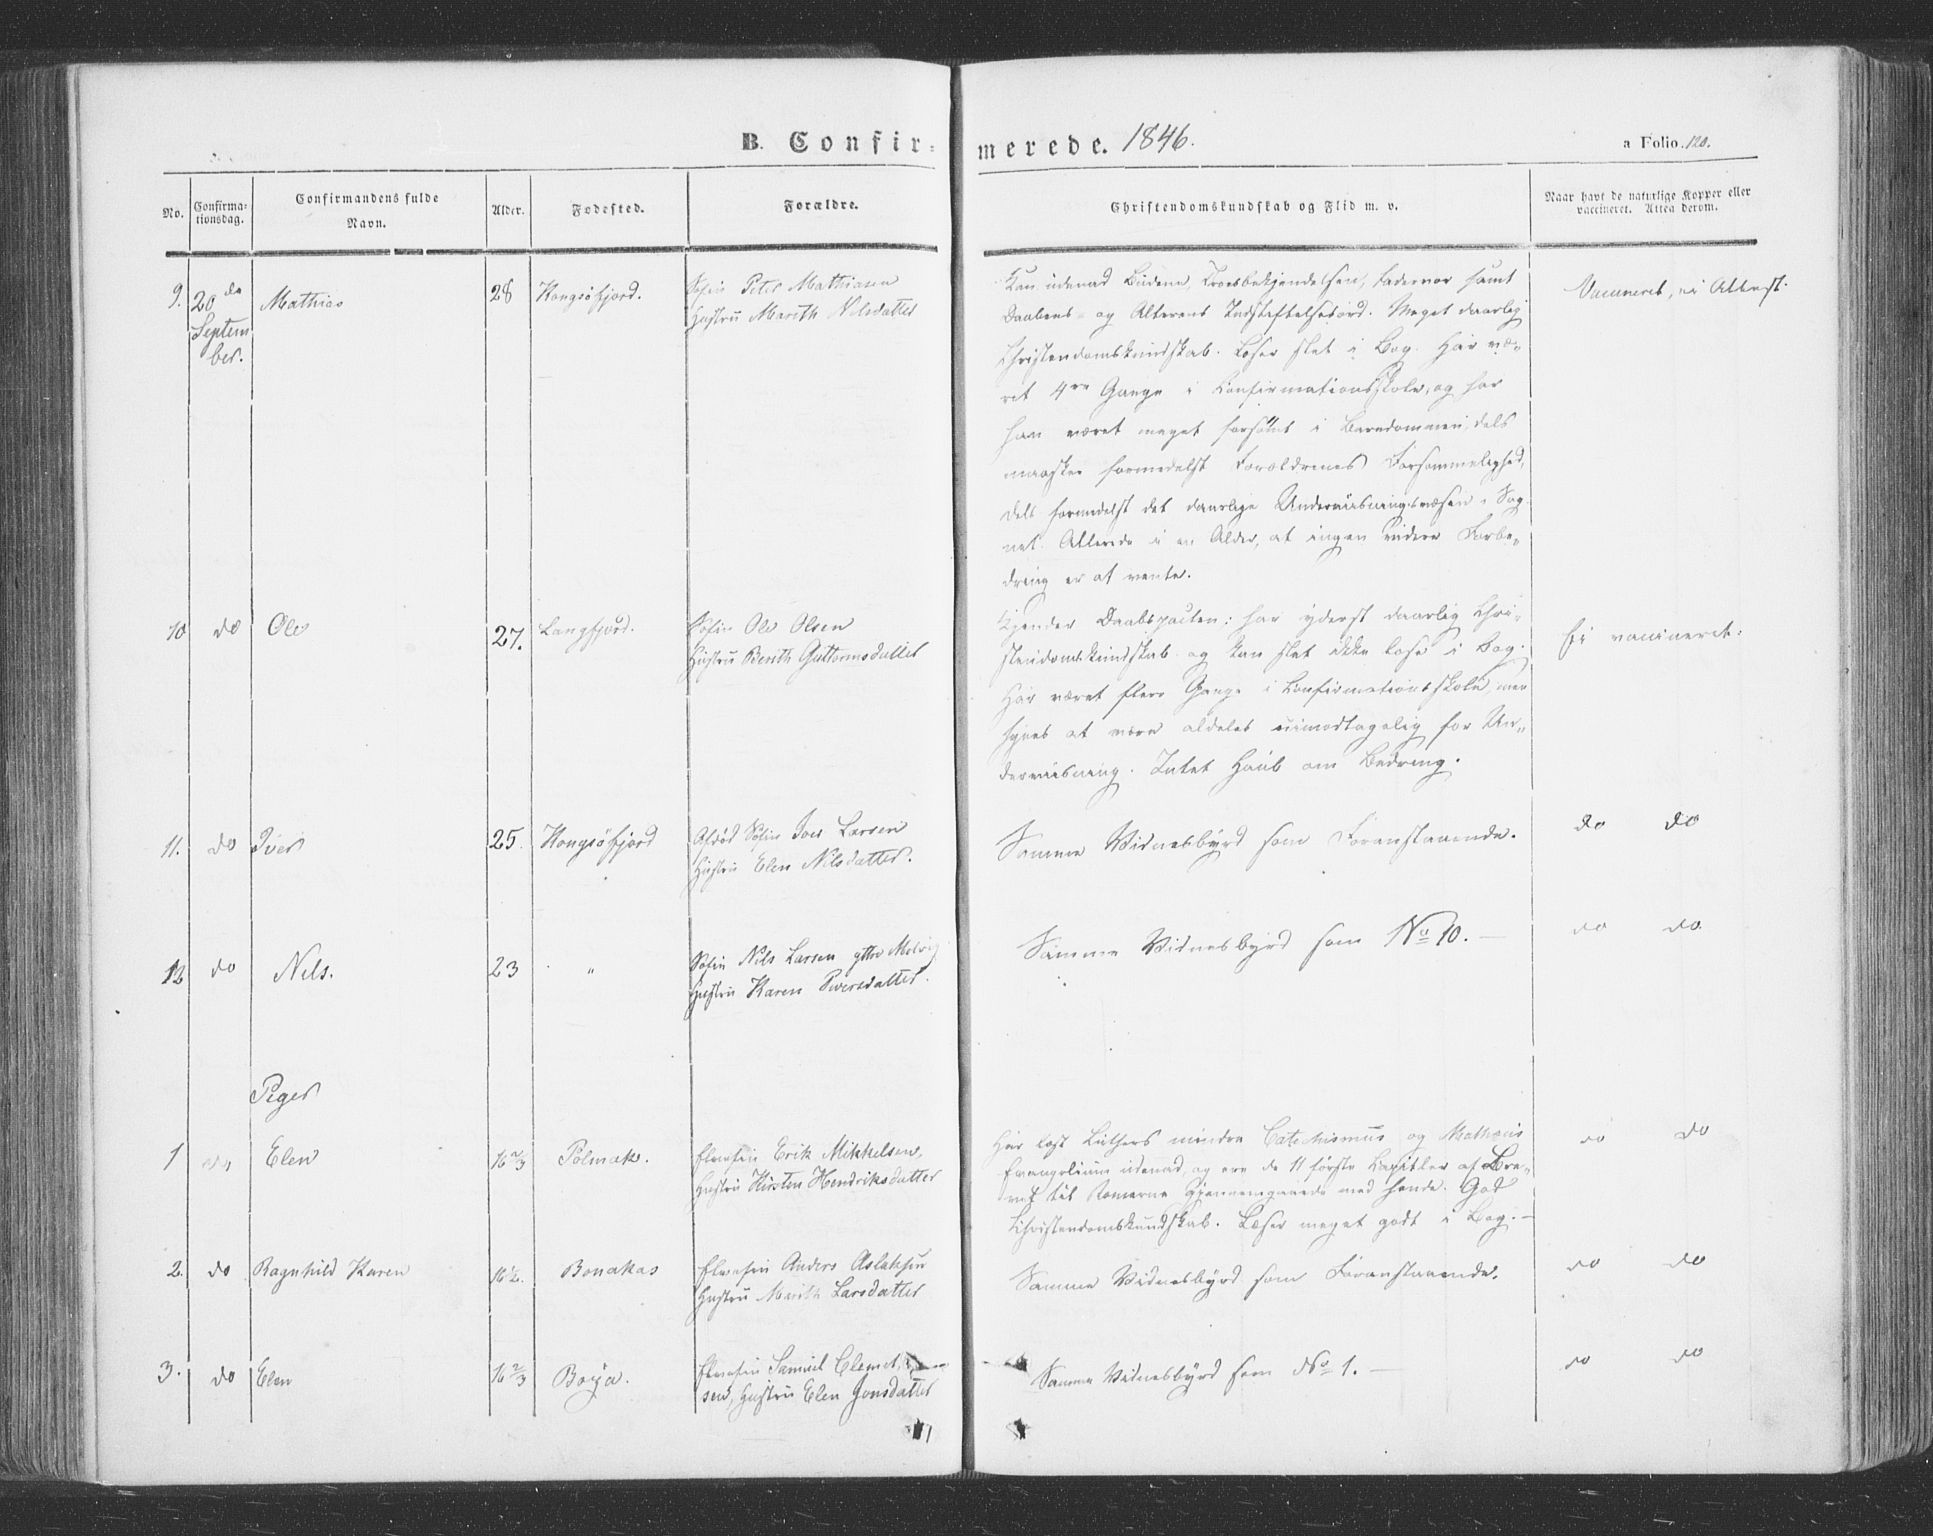 B. Confir-
merede. 1846.
a Folio. 120.
No.
Confirma-
tionsdag.
Confirmandens fulde
Navn.
Alder.
Fødested.
Forældre.
Christendomskundskab og Flid m. v.
Naar havt de naturlige Kopper eller
vaccineret. Attest derom.
9.
20de
Septem
ber.
Mathias
28
Kongsöfjord.
Söfin Peter Mathisen
Hustru Marith Nilsdatter
Kan udenad Budene, Troesbekjendelsen, Fadervor samt
Daabens- og Alterens Indstiftelsesord. Meget daarlig
Christendomskundskab. Læser slet i Bog. Har væ-
ret 4re Gange i Confirmationsskole, og har
han været meget forsömt i Barndommen, dels
maaskee formedelst Forældrenes Forsömmelighed,
dels formedelst det daarlige Underviisningsvæsen i Sog-
net. Allerede i en Alder, at ingen videre Forbe-
dring er at vente.
Vaccineret, Attest.
10
do
Ole
27.
Langfjord.
Söfin Ole Olsen
Hustru Berith Guttormsdatter
Kjender Daabspacten; har yderst daarlig Chri-
stendomskundskab og kan slet ikke læse i Bog.
Har været flere Gange i Confirmationsskole, men
synes at være aldeles uimodtagelig for Un-
derviisning. Intet Haab om Bedring.
Ei vaccineret.
11.
do
Iver
25.
Kongsöfjord
Afdöd Söfin Iver Larsen
Hustru Elen Nilsdatter.
Samme Vidnesbyrd som Foranstaaende.
do do
12
do
Nils.
23
"
Söfin Nils Larsen
Hustru Karen Iversdatter.
Samme Vidnesbyrd som No 10. —
do do
Piger
1
do
Elen
16 2/3
Polmak.
Elvefin Erik Mikkelsen,
Hustru Kirsten Hendriksdatter
Har læst Luthers mindre Catechismus og Mathæus
Evangelium udenad, og ere de 11 förste Capitler af Bre-
vet til Romerne gjennemgaaede med hende. God
Christendomskundskab. Læser meget godt i Bog. —
do do
2.
do
Ragnhild Karen
16 1/2.
Bonakas
Elvefin Anders Aslaksen
Hustru Marith Larsdatter
Samme Vidnesbyrd som Foranstaaende.
do do
3.
do
Elen
16 2/3
Borja.
Elvefin Samuel Clemet-
sen, Hustru Elen Jonsdatter
Samme Vidnesbyrd som No 1. —
do do